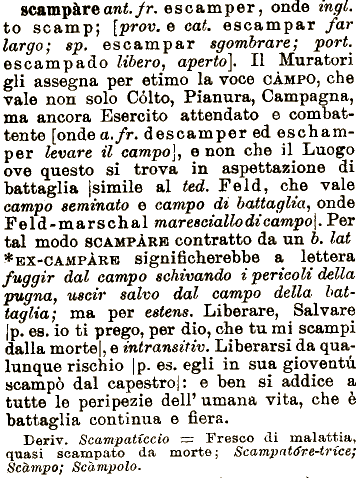 scampàre ant. fr. escamper, onde ingl.
to scamp; [prov. e cat. escampar far
largo; sp. escampar sgombrare; port.
escampado libero, aperto]. Il Muratori
gli assegna per etimo la voce CÀMPO, che
vale non solo Cólto, Pianura, Campagna,
ma ancora Esercito attendato e combat-
tente [onde a. fr. descamper ed escham-
per levare il campo], e non che il Luogo
ove questo si trova in aspettazione di
battaglia |simile al ted. Feld, che vale
campo seminato e campo di battaglia, onde
Feld-marschal maresciallo di campo|. Per
tal modo SCAMPÀRE contratto da un b. lat
*EX-CAMPÀRE significherebbe a lettera
fuggir dal campo schivando i pericoli della
pugna, uscir salvo dal campo della bat-
taglia; ma per estens. Liberare, Salvare
|p. es. io ti prego, per dio, che tu mi scampi
dalla morte|, e intransitiv. Liberarsi da qua-
lunque rischio |p. es. egli in sua gioventú
scampò dal capestro|: e ben si addice a
tutte le peripezie dell' umana vita, che è
battaglia continua e fiera.
Deriv. Scampatíccio = Fresco di malattia,
quasi scampato da morte; Scampatóre-tríce;
Scàmpo; Scàmpolo.